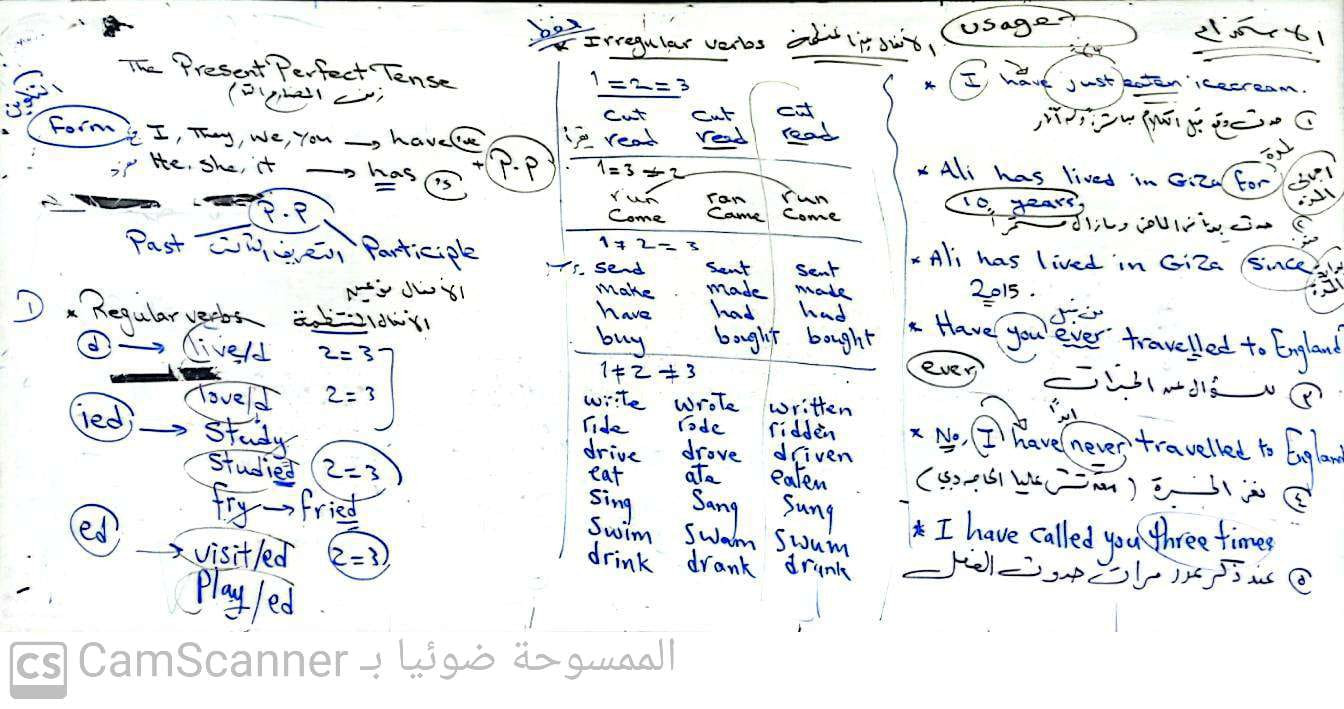 The Present Perfect Tense
زمن المضارع التام
التكوين
Form
I, They, we, you → have 've
He, she, it → has 's
+ P.P
P.P
Past التصريف الثالث Participle
الأفعال نوعين
1) * Regular verbs الأفعال المنتظمة
d → live/d 2=3
love/d 2=3
ied → study
studied 2=3
fry → fried
ed → visit/ed 2=3
play/ed
حفظ
* Irregular verbs الأفعال غير المنتظمة
1=2=3
cut cut cut
يقرأ read read read
1=3≠2
run ran run
come came come
1≠2=3
send sent sent
make made made
have had had
buy bought bought
1≠2≠3
write wrote written
ride rode ridden
drive drove driven
eat ate eaten
sing sang sung
swim swam swum
drink drank drunk
usage الاستخدام
* I have just eaten icecream.
① حدث وقع قبل الكلام مباشرة وله آثار
لمدة
* Ali has lived in Giza for
10 years.
اجمالي المدة
② حدث بدأ فى الماضى ومازال مستمرا
منذ
* Ali has lived in Giza since
2015.
بداية المدة
من قبل
* Have you ever travelled to England
ever
③ للسؤال عن الخبرات
ابداً
* No, I have never travelled to England
④ نفى الخبرة
* I have called you three times
⑤ عند ذكر عدد مرات حدوث الفعل
CS CamScanner الممسوحة ضوئيا بـ